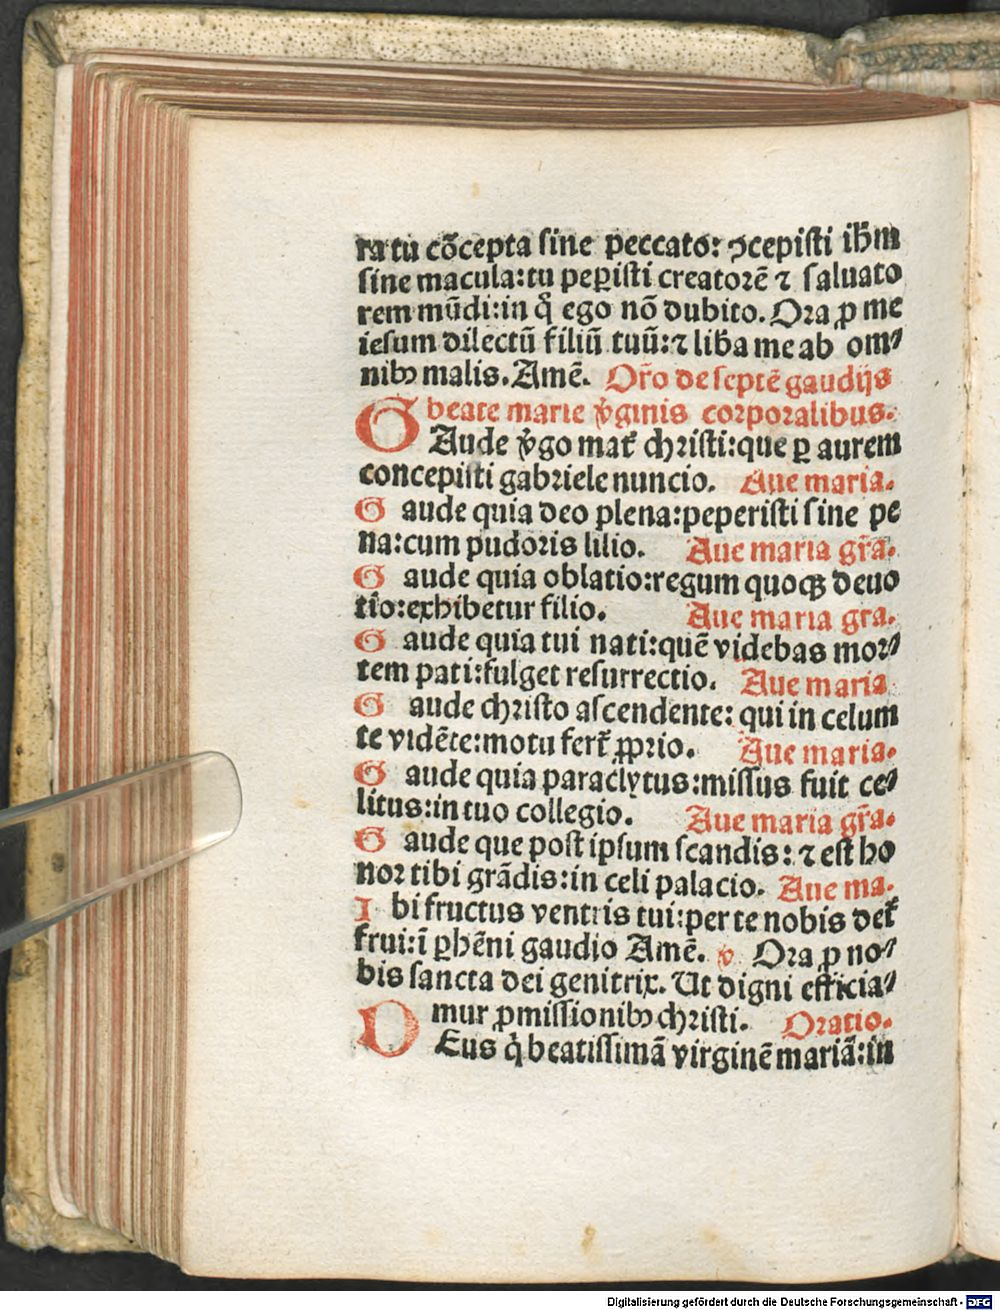 ra tu cōcepta sine peccato: ꝯcepisti ihm̄
sine macula: tu peꝑisti creatorē ⁊ saluato
rem mūdi: in q̊ ego nō dubito. Ora ꝓ me
iesum dilectū filiū tuū: ⁊ liƀa me ab om⸗
nibꝰ malis. Amē. Or̄o de septē gaudijs
beate marie v̓ginis corporalibus.
GAude v̓go mat̓ christi: que ꝑ aurem
concepisti gabriele nuncio. Aue maria.
Gaude quia deo plena: peperisti sine pe
na: cum pudoris lilio. Aue maria gr̄a.
Gaude quia oblatio: regum quoqꝫ deuo
tio: exhibetur filio. Aue maria gra.
Gaude quia tui nati: quē videbas mor⸗
tem pati: fulget resurrectio. Aue maria
Gaude christo ascendente: qui in celum
te vidēte: motu fert̓ ꝓprio. Aue maria.
Gaude quia paraclytus: missus fuit ce⸗
litus: in tuo collegio. Aue maria gr̄a.
Gaude que post ipsum scandis: ⁊ est ho
nor tibi grādis: in celi palacio. Aue ma.
Ibi fructus ventris tui: per te nobis det̓
frui: ī ꝑhēni gaudio Amē. v Ora ꝓ no⸗
bis sancta dei genitrix. Ut digni efficia⸗
mur ꝓmissionibꝰ christi. Oratio.
DEus q̇ beatissimā virginē mariā: in
Digitalisierung gefördert durch die Deutsche Forschungsgemeinschaft - DFG